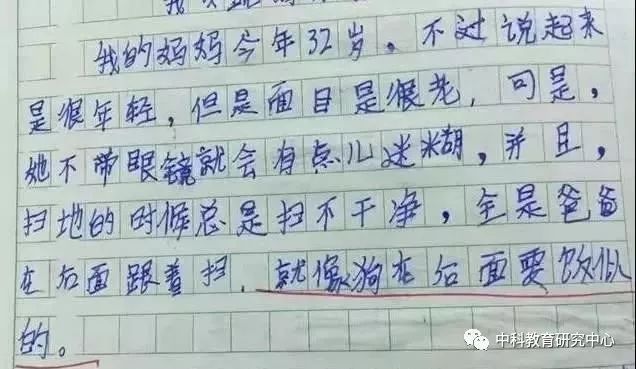 我的妈妈今年32岁。不过说起来
是很年轻，但是面目是很老，可是，
她不带眼镜就会有点儿迷糊，并且，
扫地的时候总是扫不干净，全是爸爸
在后面跟着扫．就像狗在后面要饭似
的。
中科教育研究中心